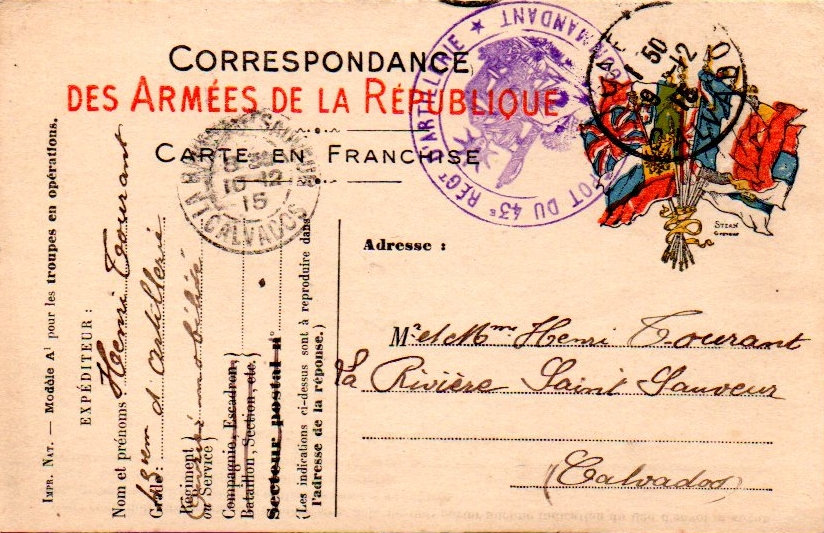 CORRESPONDANCE
DES ARMÉES DE LA RÉPUBLIQUE
CARTE EN FRANCHISE
DÉPOT DU 43e RÉGt D'ARTILLERIE ★
COMMANDANT
1 50
12
15
CALVADOS
10-12
15
CALVADOS
STERN
Adresse :
Mr et Mme Henri Tourant
La Rivière Saint Sauveur
Calvados
IMPR. NAT. — Modèle A1 pour les troupes en opérations.
EXPÉDITEUR :
Nom et prénoms : Henri Tourant
Grade : 43em d'artillerie
Régiment
ou Service)
Compagnie, Escadron,
Bataillon, Section, etc.
Secteur postal n°
(Les indications ci-dessus sont à reproduire dans
l'adresse de la réponse.)